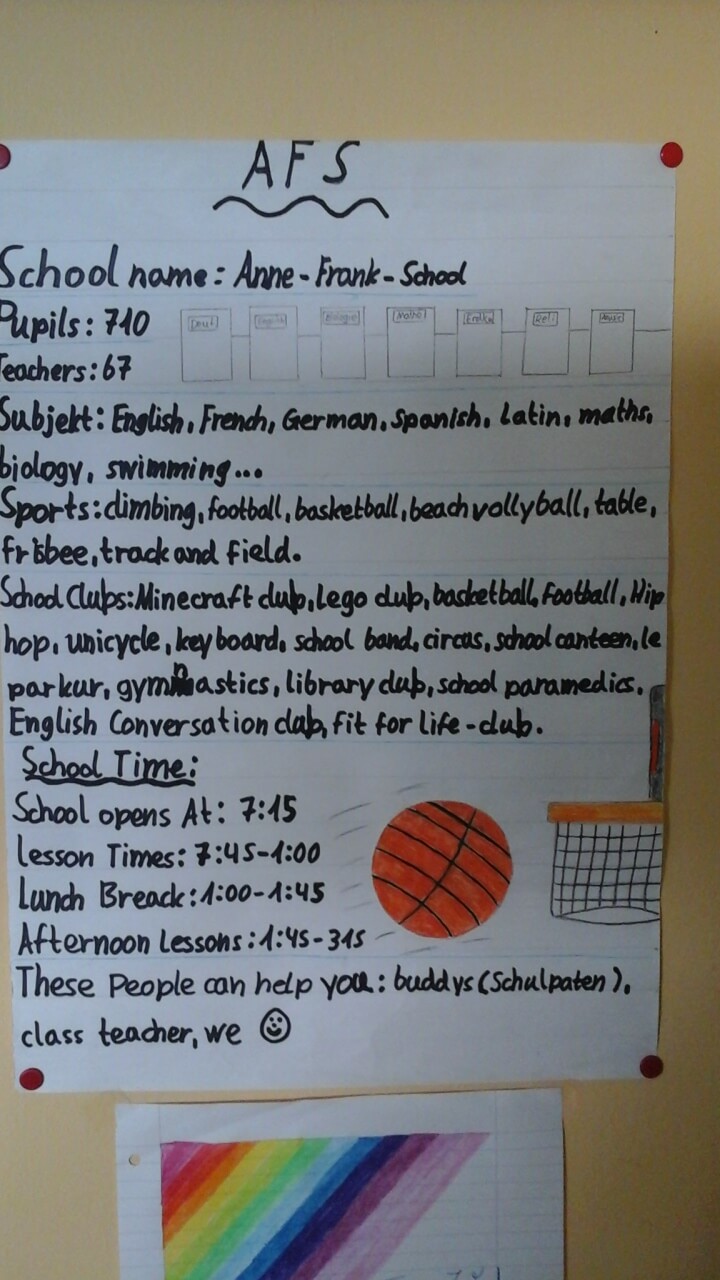 AFS
School name: Anne-Frank-School
Pupils: 710
Deut. English Biologie Mathe! Erdku. Reli Music
Teachers: 67
Subjekt: English, French, German, Spanish, Latin, maths,
biology, swimming...
Sports: climbing, football, basketball, beach vollyball, table,
frisbee, track and field.
School Clups: Minecraft club, Lego club, basketball, Football, Hip
hop, unicycle, keyboard, school band, circus, school canteen, le
parkur, gymnastics, library club, school paramedics,
English Conversation clab, fit for life-club.
School Time:
School opens At: 7:15
Lesson Times: 7:45-1:00
Lunch Breack: 1:00-1:45
Afternoon Lessons: 1:45-315
These People can help you: buddys (Schulpaten),
class teacher, we ☺